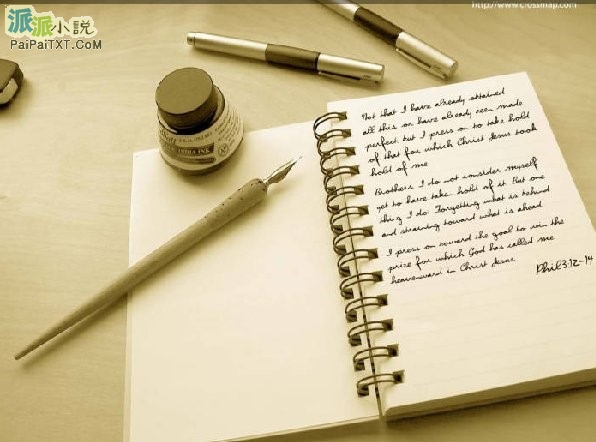 派派小説
PaiPaiTXT.COM
http://www.crossmap.com
INDIA INK
Not that I have already obtained
all this or have already been made
perfect, but I press on to take hold
of that for which Christ Jesus took
hold of me
Brothers, I do not consider myself
yet to have taken hold of it. But one
thing I do: Forgetting what is behind
and straining toward what is ahead
I press on toward the goal to win the
prize for which God has called me
heavenward in Christ Jesus
Phil 3:12-14